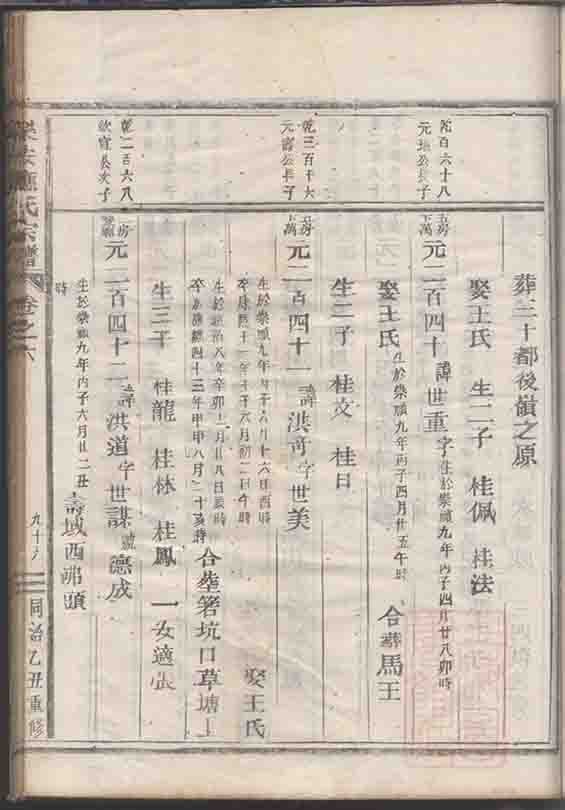 葬三十都後嶺之原
娶王氏 生二子 桂佩 桂法
乾百六十八
元 公長子
五房
下萬
元二百四十 諱世重 字 生於崇禎九年丙子四月廿八卯時
娶王氏 生於崇禎九年丙子四月廿五午時 合葬馬王
生二子 桂文 桂日
乾三百十六
元 公長子
元二百四十一 諱洪奇 字世美
生於崇禎九年丙子六月十六日酉時
卒康熙十一年壬子六月初二日午時
娶王氏
生於順治八年辛卯二月廿八日辰時
卒康熙四十三年甲申八月二十亥時
合塟箬坑口草塘上
生三子 桂龍 桂林 桂鳳 一女適張
乾二百六八
欽 公次子
元二百四十二 諱洪道 字世謀 號德成
生於崇禎九年丙子六月廿二丑
時
壽域西 頭
樂安 氏宗譜 卷之六
九十六
同治乙丑重修